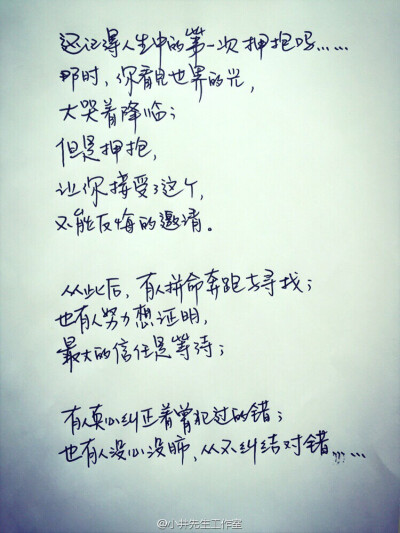 还记得人生中的第一次拥抱吗……
那时，你看见世界的光，
大哭着降临；
但是拥抱，
让你接受了这个，
不能反悔的邀请。
从此后，有人拼命奔跑去寻找；
也有人努力想证明，
最大的信任是等待；
有人真心纠正着曾犯过的错；
也有人没心没肺，从不纠结对错……
@小井先生工作室